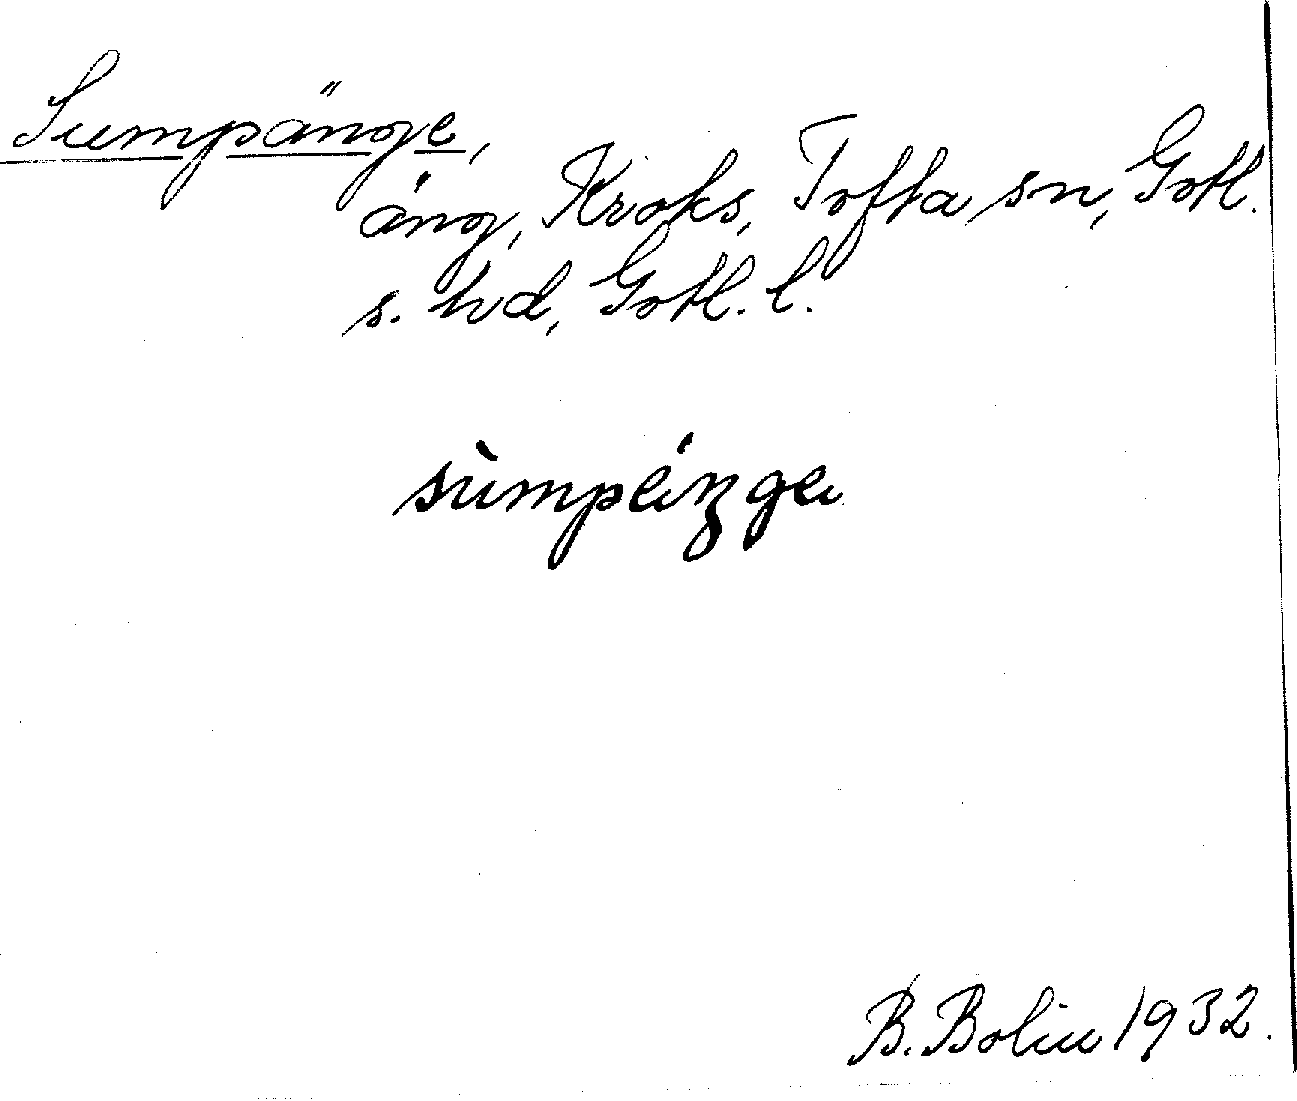 Sumpänge,
äng, Kroks, Tofta sn, Gotl.
s. hd, Gotl. l.
sùmpéŋge
B. Bolin 1932.